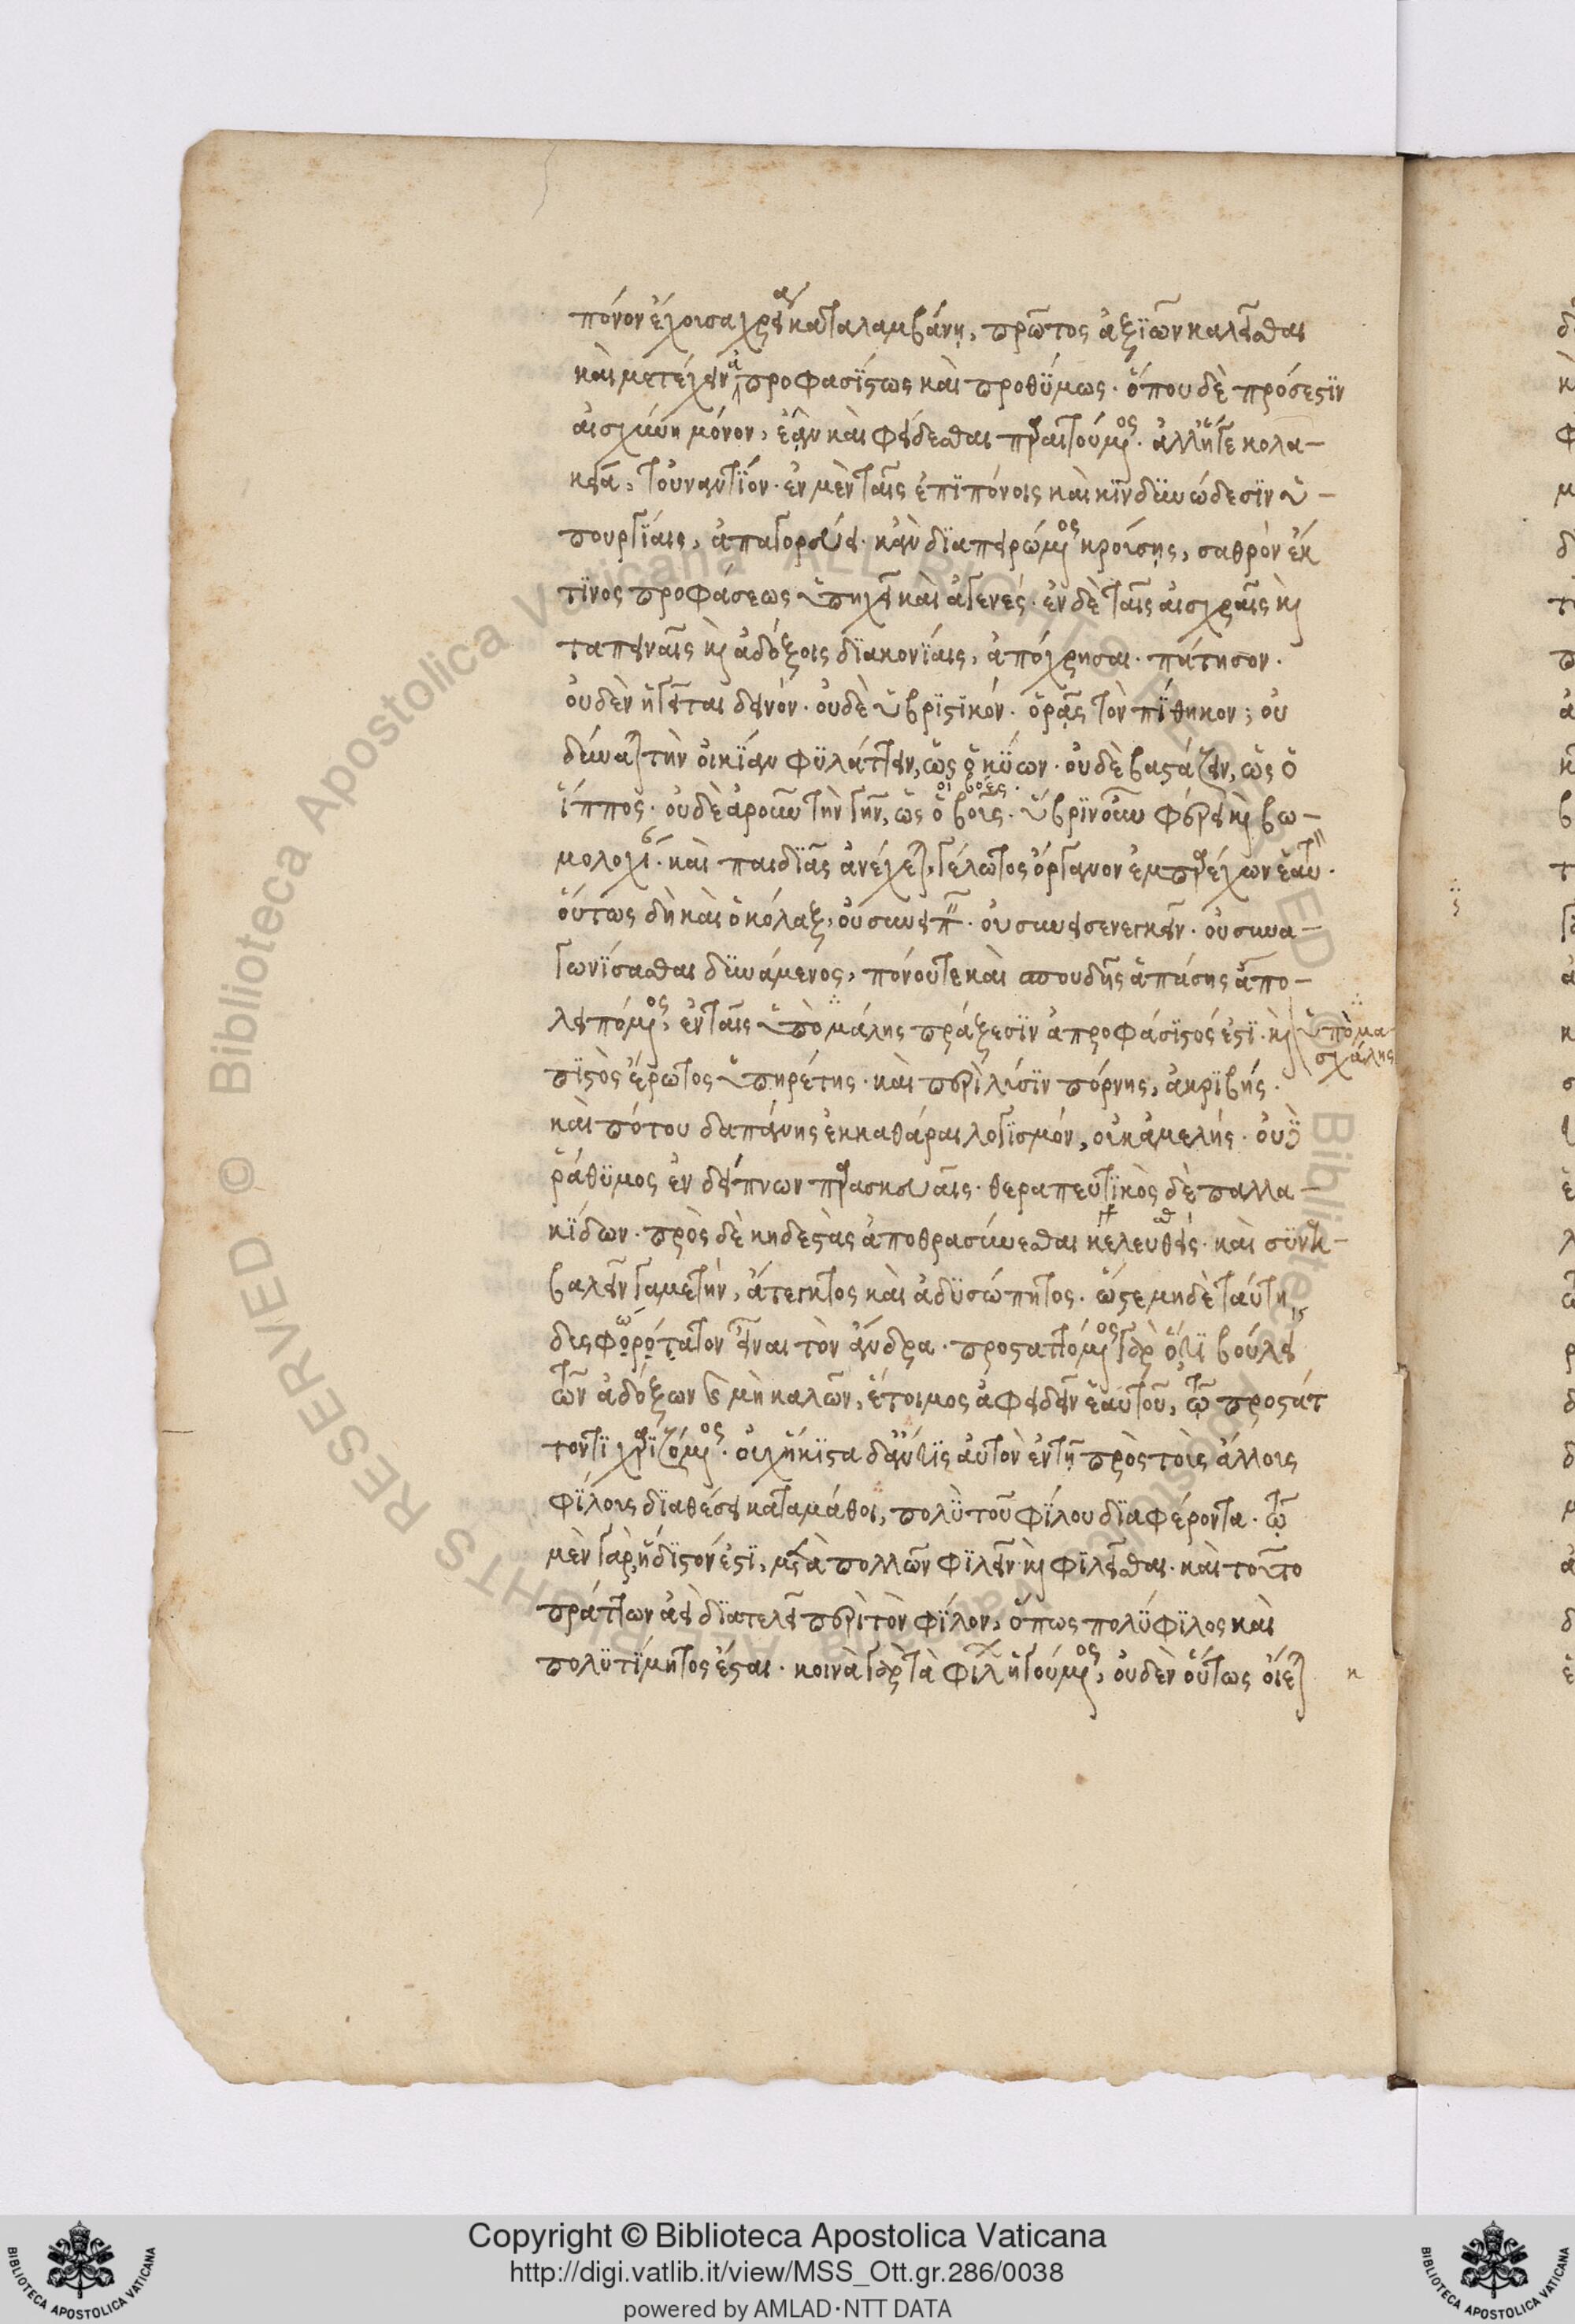 πόνον ἔχουσα χρεία καταλαμβάνῃ, πρῶτος ἀξιῶν καλεῖσθαι
καὶ μετέχειν ἀπροφασίστως καὶ προθύμως· ὅπου δὲ πρόσεστιν
αἰσχύνη μόνον, ἐᾶν καὶ φείδεσθαι παραιτούμενος· ἀλλ' ἥ γε κολα–
κεία, τοὐναντίον· ἐν μὲν ταῖς ἐπιπόνοις καὶ κινδυνώδεσιν ὑ–
πουργίαις, ἀπαγορεύει· κἂν διαπειρώμενος κρούσῃς, σαθρὸν ἔκ
τινος προφάσεως ὑπηχεῖ καὶ ἀγενές· ἐν δὲ ταῖς αἰσχραῖς καὶ
ταπειναῖς καὶ ἀδόξοις διακονίαις, ἀπόχρησαι· πάτησον·
οὐδὲν ἡγεῖται δεινόν· οὐδὲ ὑβριστικόν· ὁρᾷς τὸν πίθηκον; οὐ
δύναται τὴν οἰκίαν φυλάττειν, ὡς ὁ κύων· οὐδὲ βαστάζειν, ὡς ὁ
οἱ βόες·
ἵππος· οὐδὲ ἀροῦν τὴν γῆν, ὡς ὁ βοῦς· ὕβριν οὖν φέρει καὶ βω–
μολοχίαν· καὶ παιδιᾶς ἀνέχεται, γέλωτος ὄργανον ἐμπαρέχων ἑαυτόν·
οὕτως δὴ καὶ ὁ κόλαξ, οὐ συνειπεῖν· οὐ συνεισενεγκεῖν· οὐ συνα–
γωνίσασθαι δυνάμενος, πόνου τε καὶ σπουδῆς ἁπάσης ἀπο–
λειπόμενος, ἐν ταῖς ὑπὸ μάλης πράξεσιν ἀπροφάσιστός ἐστι· καὶ
ὑπὸ μα
σχάλης
πιστὸς ἔρωτος ὑπηρέτης· καὶ περὶ λύσιν πόρνης, ἀκριβής·
καὶ πότου δαπάνης ἐκκαθάραι λογισμόν, οὐκ ἀμελής· οὐδὲ
ῥάθυμος ἐν δείπνων παρασκευαῖς· θεραπευτικὸς δὲ παλλα–
κίδων· πρὸς δὲ κηδεστὰς ἀποθρασύνεσθαι κελευθείς· καὶ συνεκ–
βαλεῖν γαμετήν, ἄτεγκτος καὶ ἀδυσώπητος· ὥστε μηδὲ ταύτῃ
δυσφωρότατον εἶναι τὸν ἄνδρα· προσταττόμενος γὰρ ὅ,τι βούλει
τῶν ἀδόξων καὶ μὴ καλῶν, ἕτοιμος ἀφειδεῖν ἑαυτοῦ, τῷ προστάτ
τοντι χαριζόμενος· οὐχ ἥκιστα δ' ἄν τις αὐτὸν ἐν τῇ πρὸς τοὺς ἄλλους
φίλους διαθέσει καταμάθοι, πολὺ τοῦ φίλου διαφέροντα· τῷ
μὲν γὰρ ἥδιστόν ἐστι, μετὰ πολλῶν φιλεῖν καὶ φιλεῖσθαι· καὶ τοῦτο
πράττων ἀεὶ διατελεῖ περὶ τὸν φίλον, ὅπως πολύφιλος καὶ
πολυτίμητος ἔσται· κοινὰ γὰρ τὰ φίλων ἡγούμενος, οὐδὲν οὕτως οἴεται